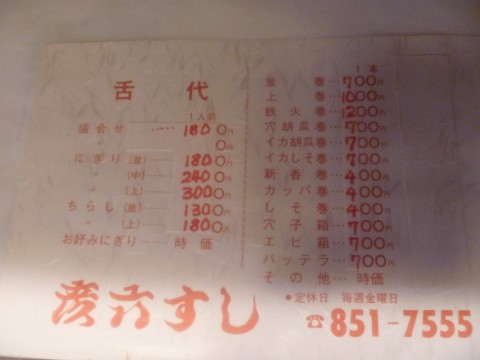 舌代
1人前
盛合せ……1800円
〃 0円
にぎり(並)1800円
〃 (中)2400円
〃 (上)3000円
ちらし(並)1300円
〃 (上)1800円
お好みにぎり——時価
1本
並巻…700円
上巻…1000円
鉄火巻…1200円
穴胡瓜巻…700円
イカ胡瓜巻…700円
イカしそ巻…700円
新香巻…400円
カッパ巻…400円
しそ巻…400円
穴子箱…700円
エビ箱…700円
バッテラ…700円
その他…時価
●定休日 毎週金曜日
六すし
☎851-7555